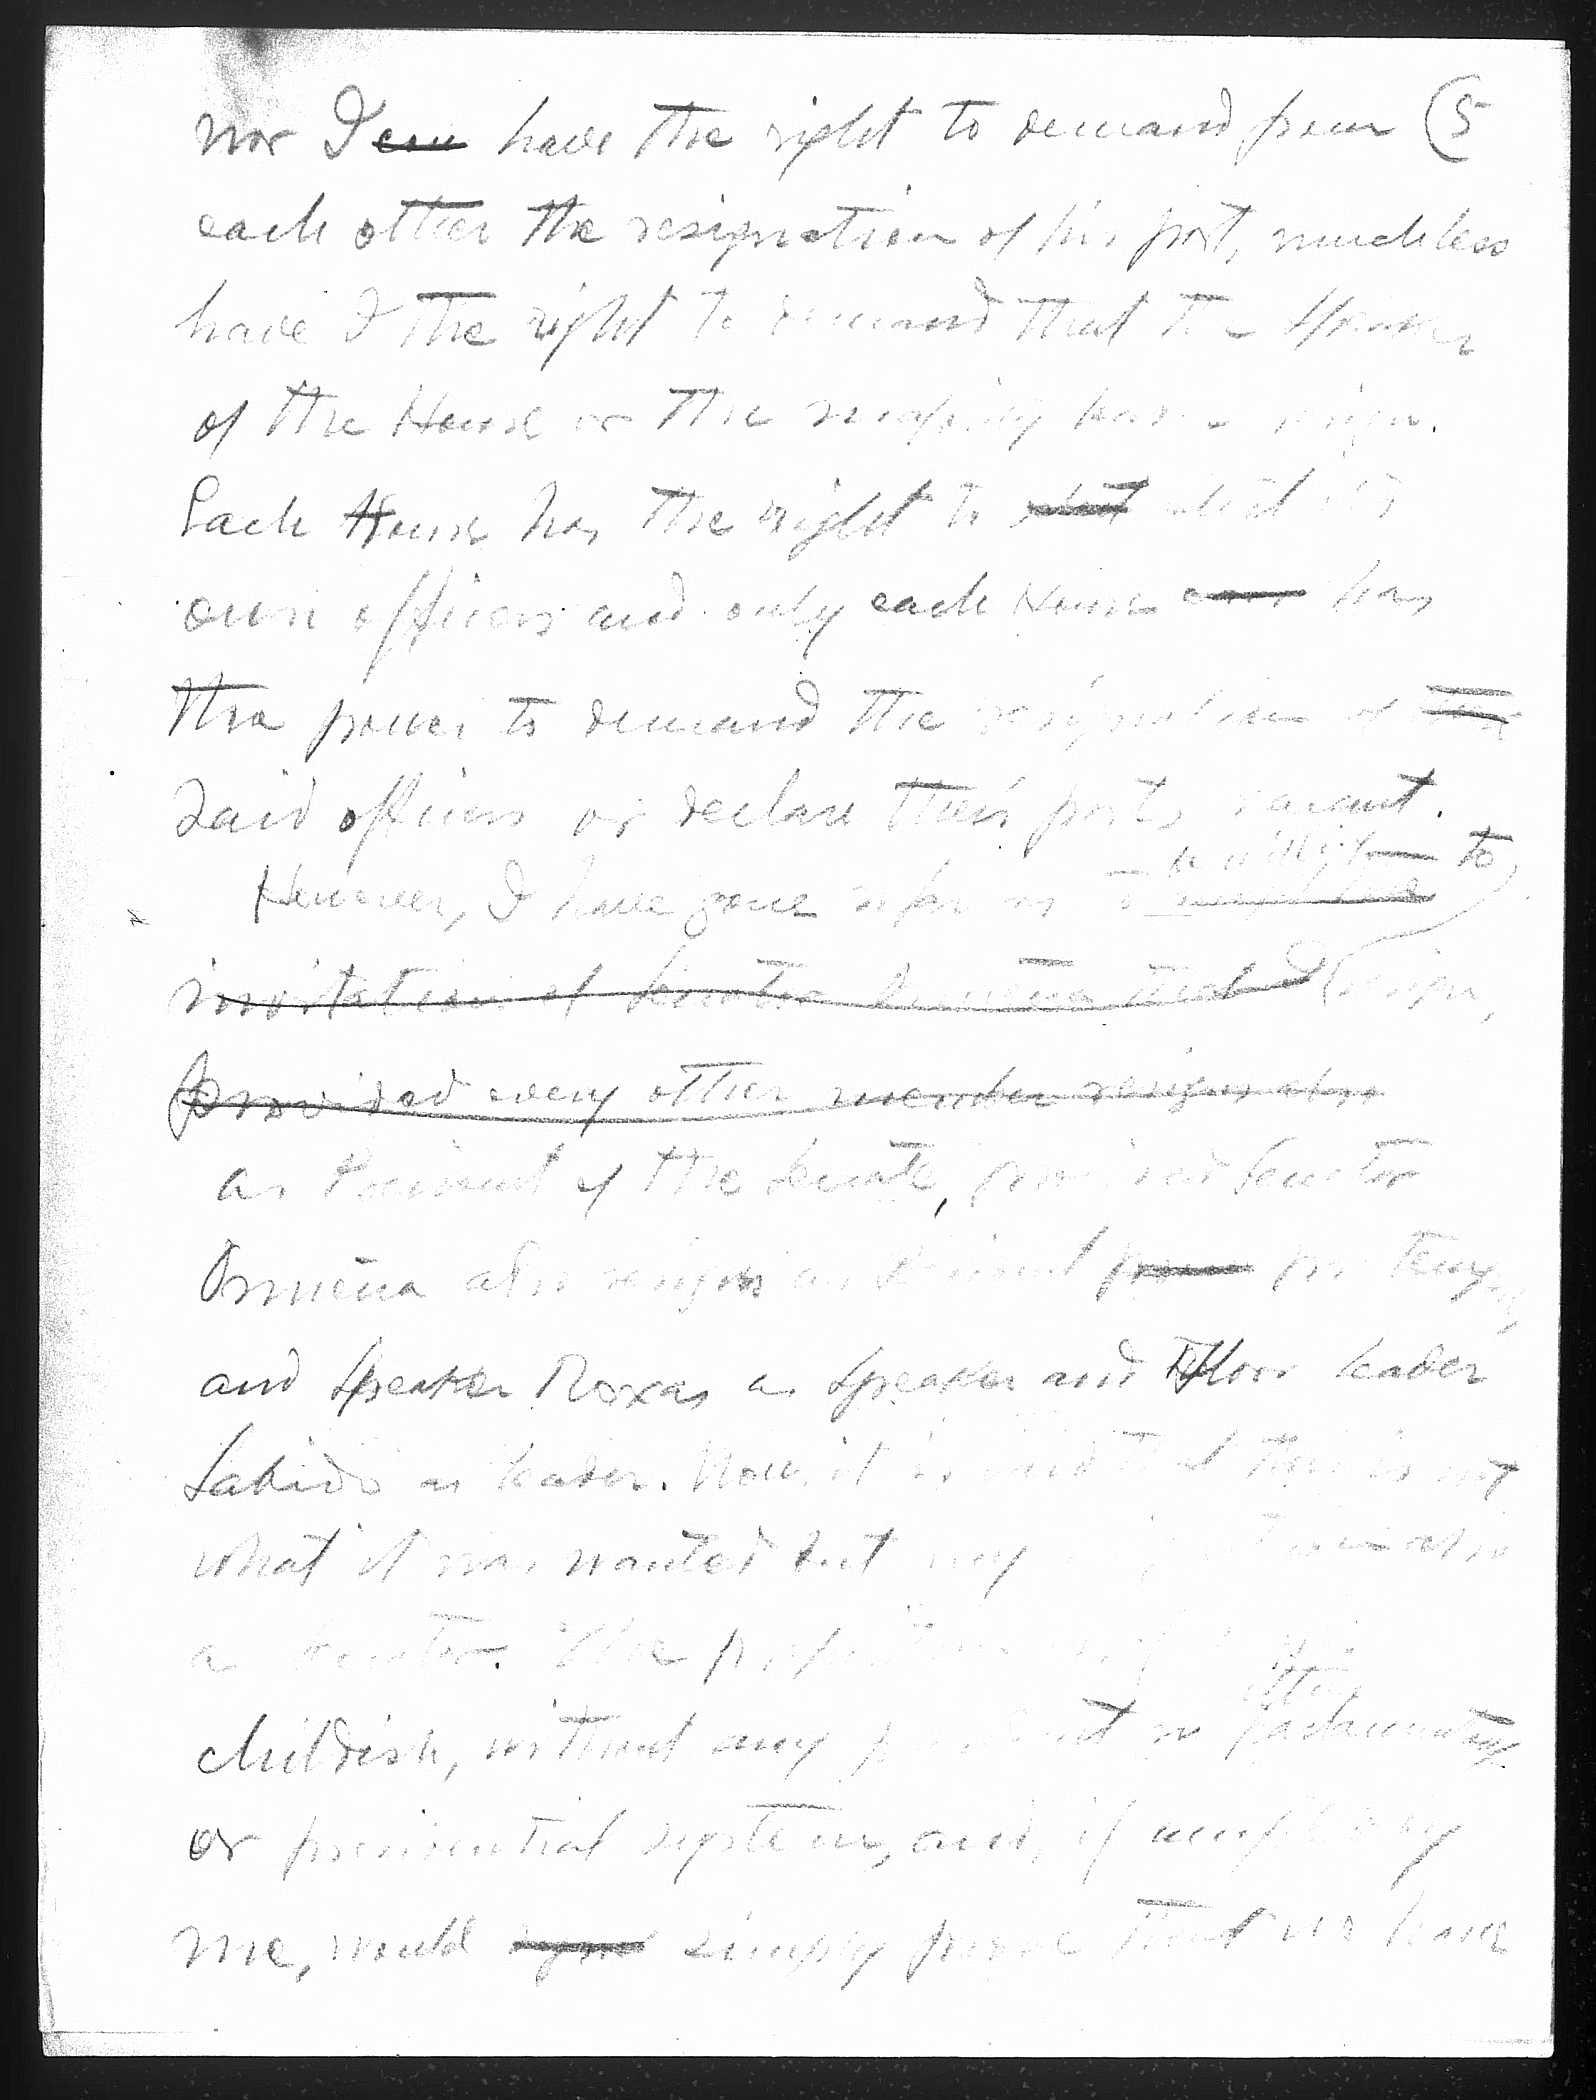 nor I can have the right to demand from (5
each other the resignation of his post, much less
have I the right to demand that the Speaker
of the House or the majority leader resign.
Each House has the right to elect its
own officers and only each House has
the power to demand the resignation of
said officers or declare their posts vacant.
be willing to
However, I have gone so far as to
invitation of Senator Osmeña that I resign,
provided every other member resigns also
as President of the Senate, provided Senator
Osmeña also resigns as President pro Tempore,
and Speaker Roxas as Speaker and Floor leader
Sabido as leader. Now it is said that this is not
what it was wanted but my
a Senator. The
either
childish, without any precedent in parliamentary
or presidential system, and, if by
me, would simply prove that we have